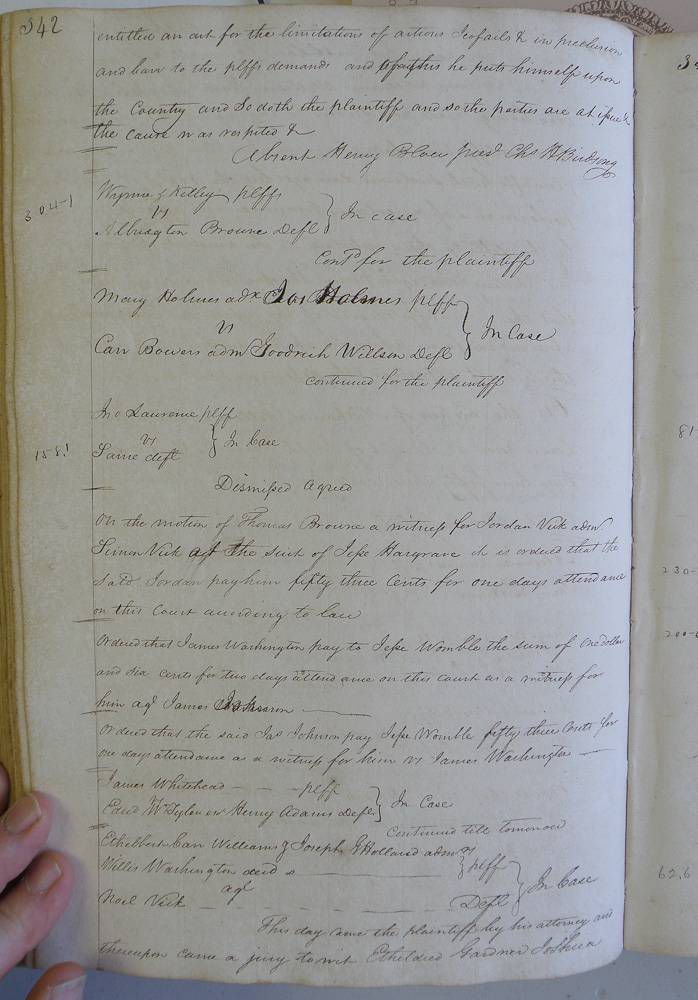 342
entitled an act for the limitations of actions Jeofails & in preclusion
and barr to the plffs demands and of this he puts himself upon
the Country and so doth the plaintiff and so the parties are at issue &
the cause was respited &
Absent Henry Blow pres. Chs H Birdsong
304-1
Wynne & Kelley plffs
vs } In case
Albridgton Browne Deft
Contd for the plaintiff
Mary Holmes adx Jas Holmes plff
vs } In Case
Carr Bowers adm Goodrich Willson Deft
continued for the plaintiff
Jno Lawrence plff
158.1
vs } In Case
Same deft
Dismissed agreed
On the motion of Thomas Browne a witness for Jordan Vick adm
Simon Vick at The suit of Jesse Hargrave it is ordered that the
said Jordan pay him fifty three Cents for one days attendance
on this Court according to law
Ordered that James Washington pay to Jesse Womble the sum of One dollar
and six cents for two days attendance on this court as a witness for
him agt James Johnson
Ordered that the said Jas Johnson pay Jesse Womble fifty three Cents for
one days attendance as a witness for him vs James Washington
James Whitehead - - - plff
vs } In Case
Edwd Taylor exr Henry Adams Deft
Continued till tomorrow
Ethelbert Carr Williams & Joseph G Holland admrs
Willis Washington decd } plff
agt } In Case
Noel Vick - - - Deft
This day came the plaintiff by his attorney and
thereupon came a jury to wit Etheldred Gardner Joshua
34
81-
230-
200-6
62,6